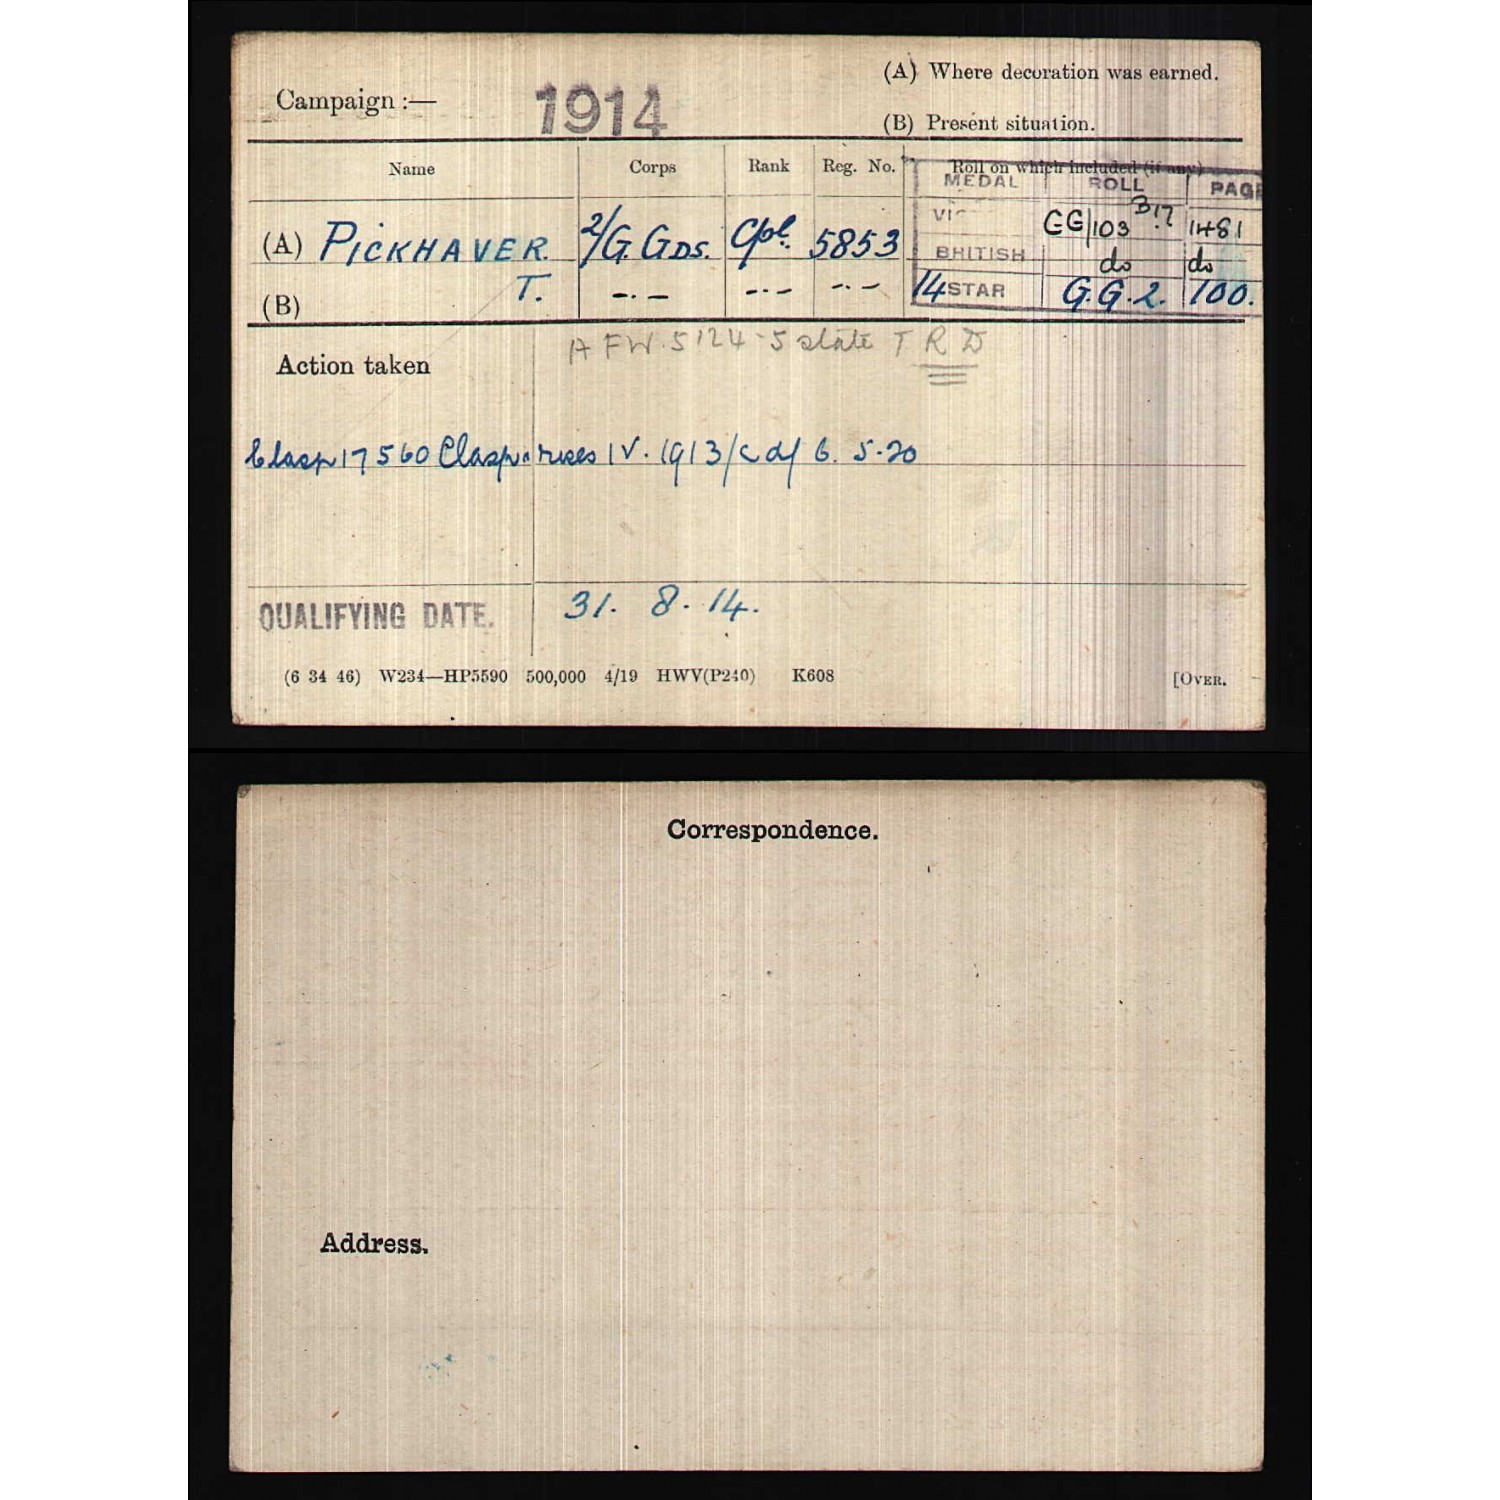 Campaign :— 1914
(A) Where decoration was earned.
(B) Present situation.
Name Corps Rank Reg. No. Roll on which included (if any)
MEDAL ROLL PAGE
VI GG/103 B17 1481
(A) PICKHAVER 2/G. GDS. Cpl. 5853
BRITISH do do
(B) T. —.— —.— —.— 14 STAR G.G.2. 100.
Action taken
AFW.5124-5 state T R D
Clasp 17560 Clasp & roses IV. 1913/ 6. 5.20
QUALIFYING DATE. 31. 8. 14.
(6 34 46) W234—HP5590 500,000 4/19 HWV(P240) K608 [OVER.
Correspondence.
Address.